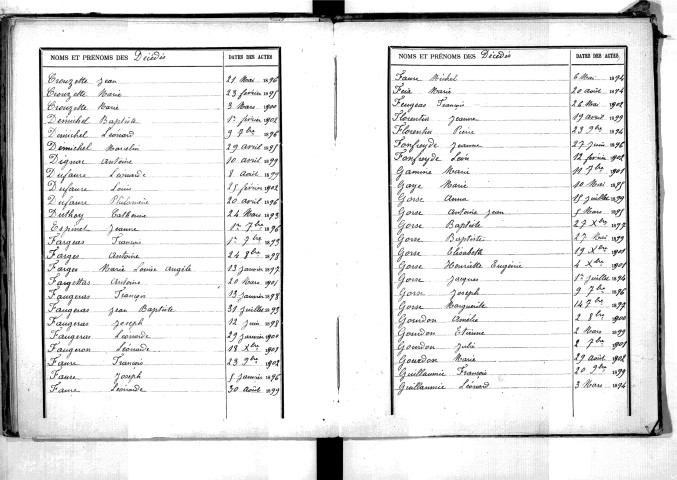 NOMS ET PRÉNOMS DES Décédés DATES DES ACTES
Crouzette Jean 21 Mai 1896
Crouzette Marie 23 février 1895
Crouzette Marie 3 Mars 1900
Demichel Baptiste 1er février 1902
Demichel Léonard 9 7bre 1896
Demichel Marcelin 29 avril 1895
Dignac Antoine 10 avril 1899
Dufaure Léonarde 8 Août 1899
Dufaure Louis 25 février 1902
Dufaure Philomène 20 avril 1896
Duthoy Catherine 24 Mars 1893
Espinet Jeanne 1er 7bre 1896
Fargeas François 1er 7bre 1893
Farges Antoine 24 8bre 1898
Farges Marie Louise Angèle 13 janvier 1897
Fargettas Antoine 20 Mars 1901
Faugeras François 13 janvier 1898
Faugeras Jean Baptiste 31 juillet 1893
Faugeras Joseph 12 juin 1898
Faugeras Léonarde 29 janvier 1900
Faugeron Léonarde 18 Xbre 1901
Faure François 23 9bre 1902
Faure Joseph 5 janvier 1896
Faure Léonarde 30 Août 1899
NOMS ET PRÉNOMS DES Décédés DATES DES ACTES
Faure Michel 6 Mai 1894
Feix Marie 20 août 1894
Feugeas François 26 Mai 1902
Florentin Jeanne 19 avril 1899
Florentin Pierre 23 9bre 1894
Fonfreyde Jeanne 27 juin 1896
Fonfreyde Léon 12 février 1902
Gamine Marie 11 7bre 1901
Gaye Marie 10 Mars 1895
Gorse Anna 15 juillet 1899
Gorse Antoine Jean 5 Mars 1895
Gorse Baptiste 27 Xbre 1897
Gorse Baptiste 27 Mai 1899
Gorse Elisabeth 19 Xbre 1901
Gorse Henriette Eugénie 4 Xbre 1901
Gorse Jacques 1er juillet 1894
Gorse Joseph 9 7bre 1896
Gorse Marguerite 14 7bre 1897
Gourdon Amélie 2 8bre 1900
Gourdon Etienne 2 Mars 1899
Gourdon Julie 2 7bre 1901
Gourdon Marie 29 Août 1902
Guillaumie François 20 9bre 1899
Guillaumie Léonard 3 Mars 1894